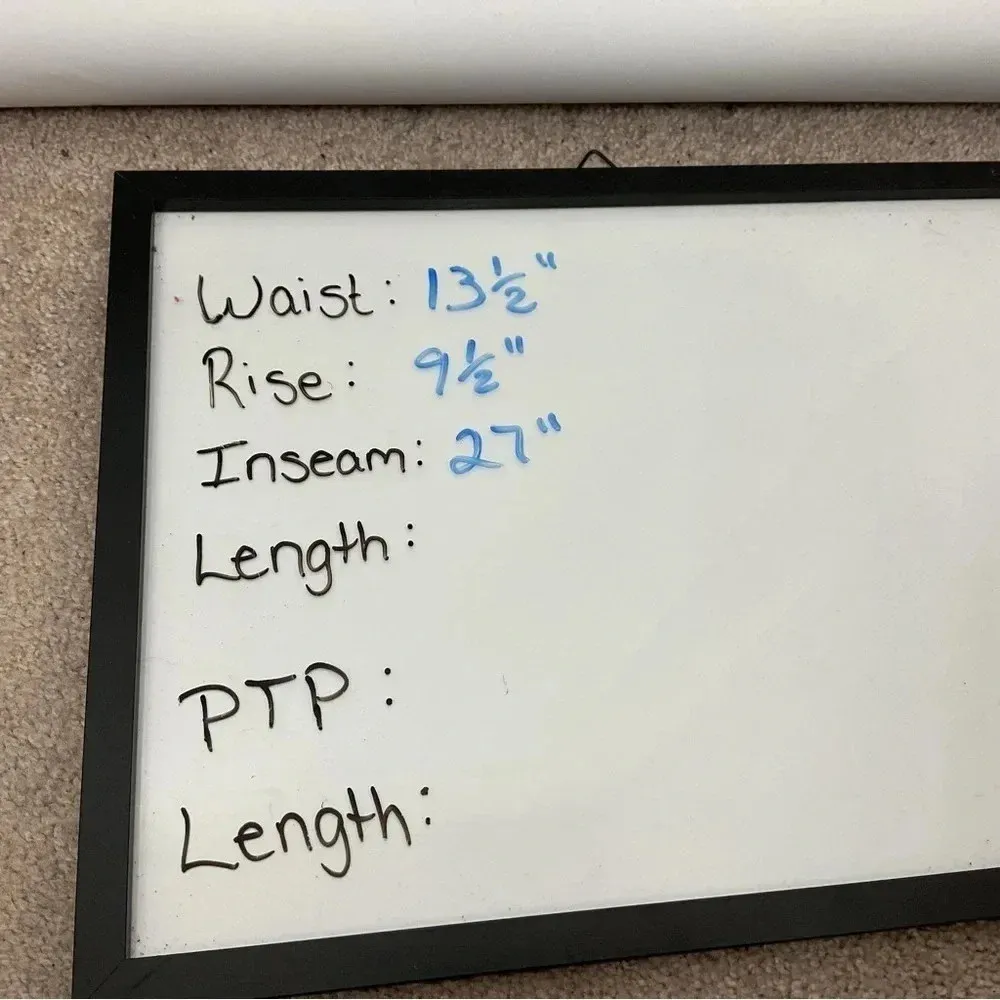 Waist: 13½"
Rise: 9½"
Inseam: 27"
Length:
PTP:
Length: